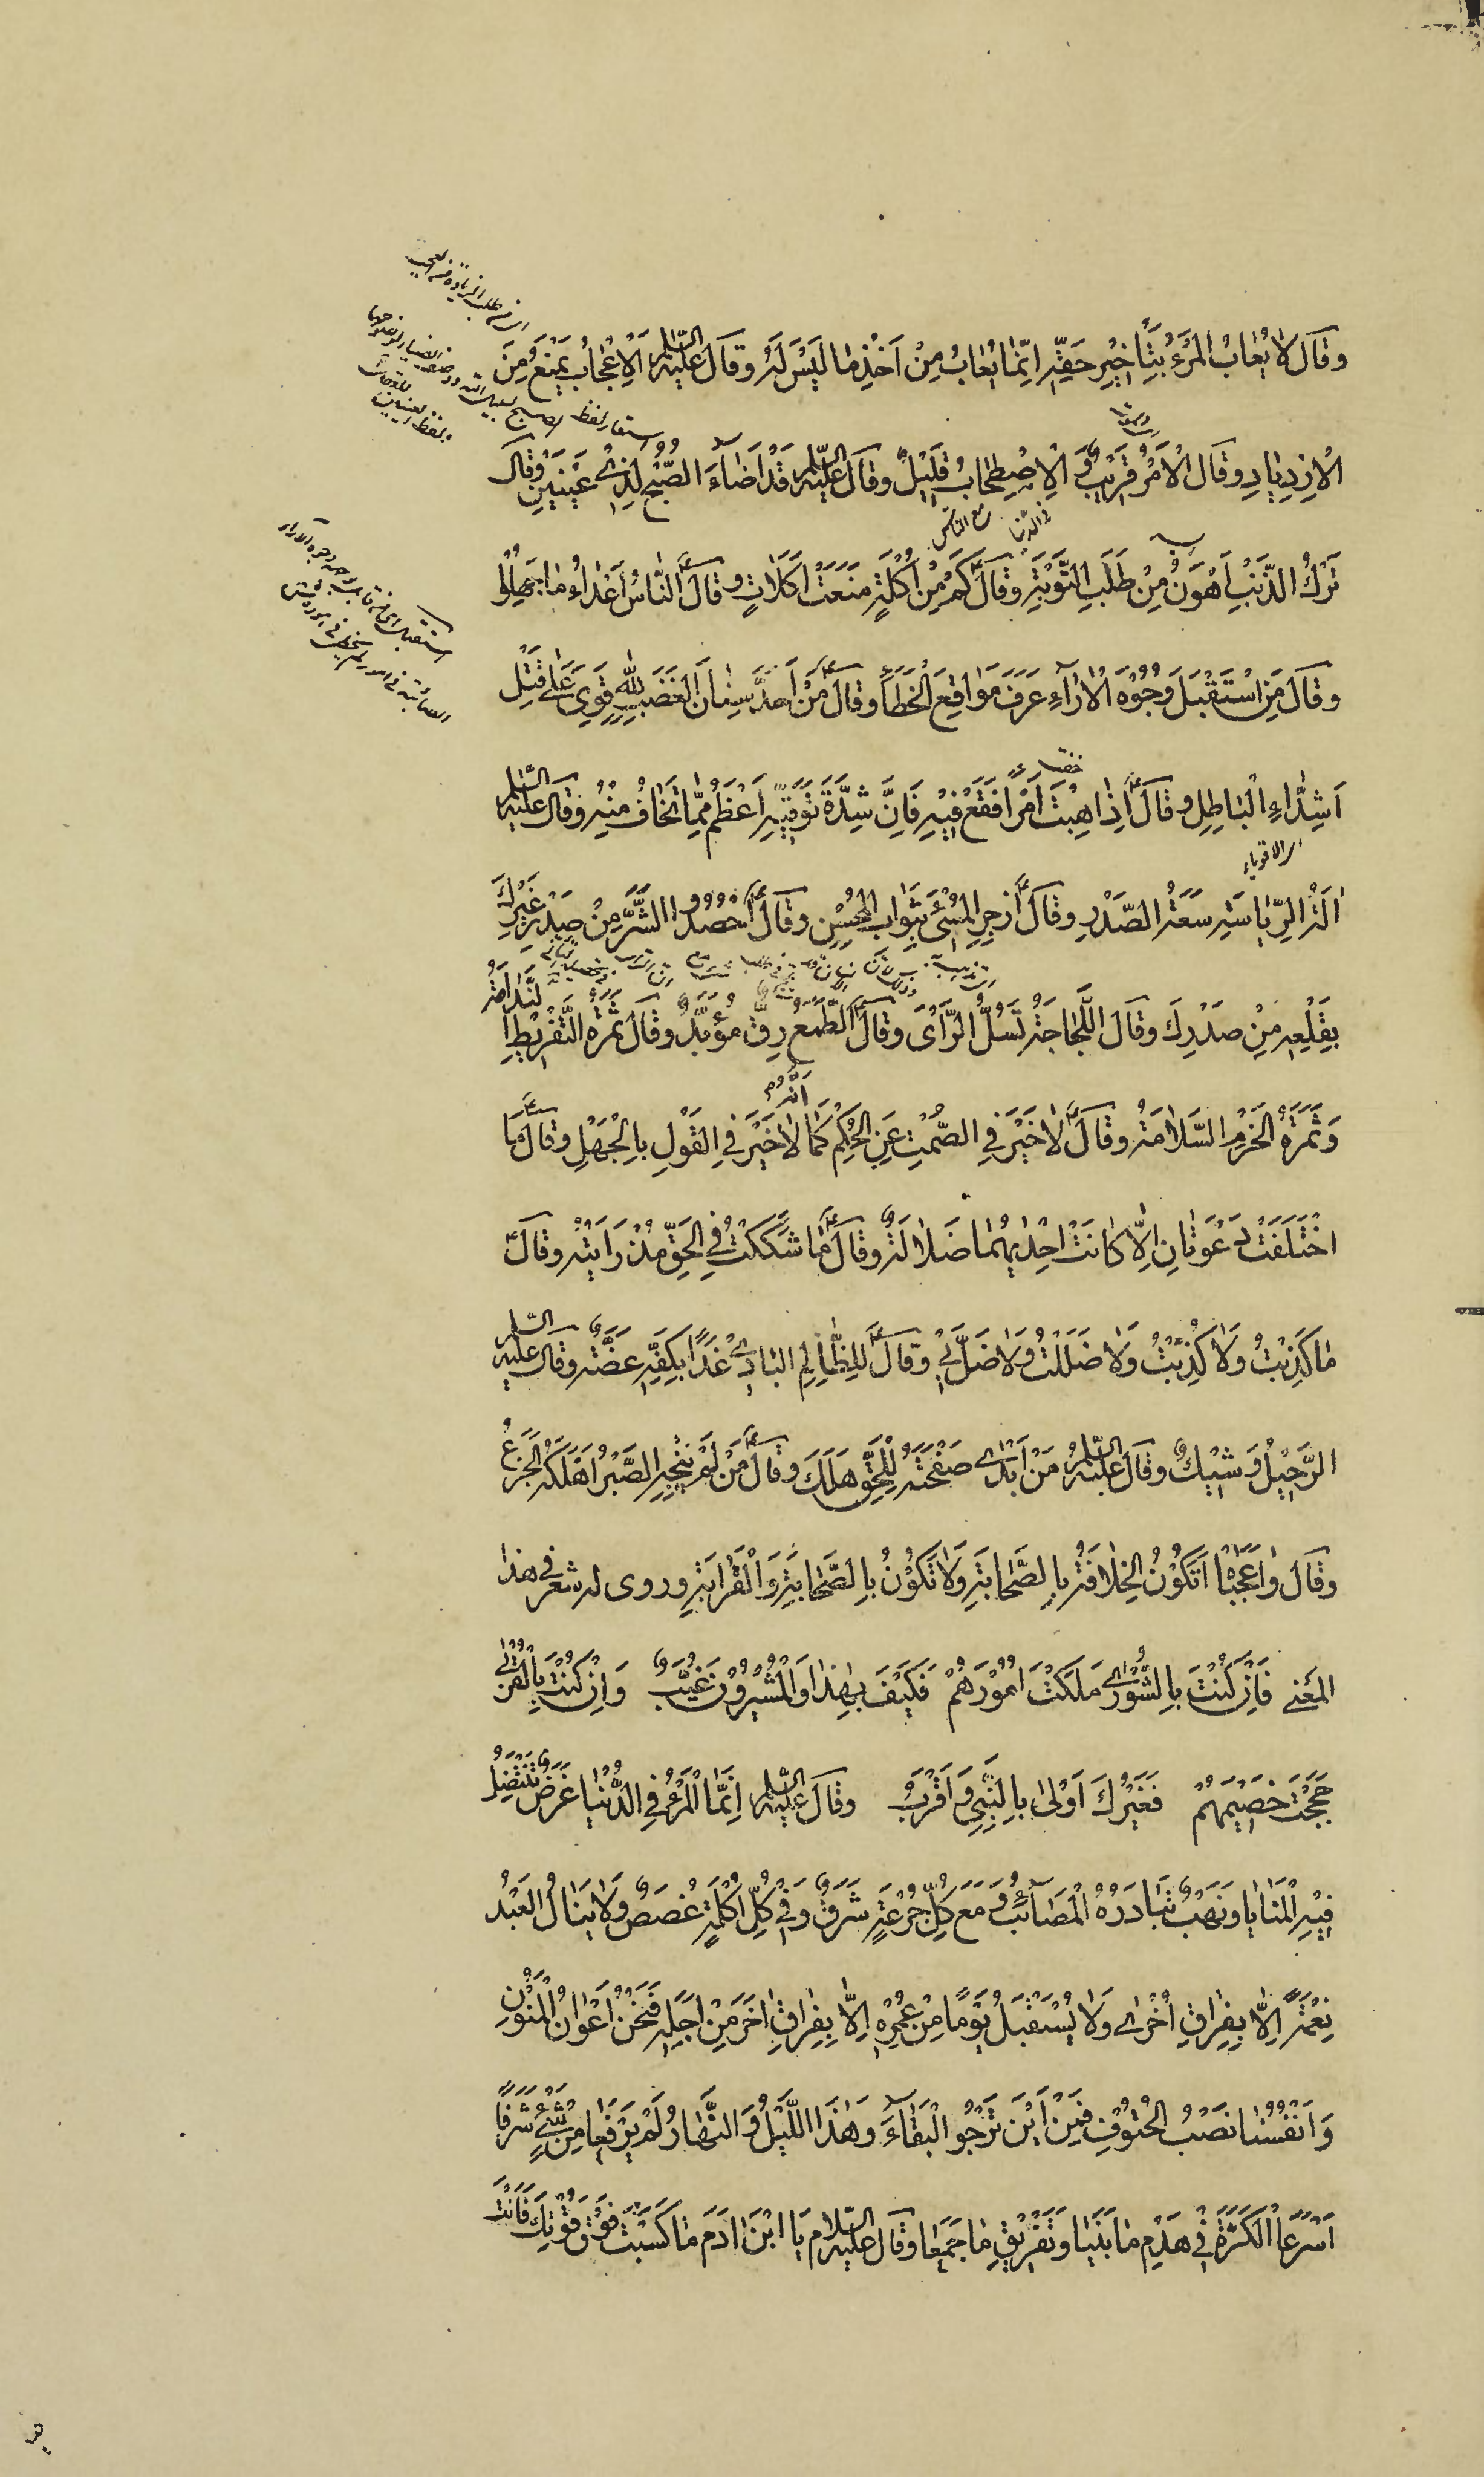 وقَالَ لَا يُعَابُ الْمَرْءُ بِتَأْخِيرِ حَقِّهِ اِنَّمَا يُعَابُ مِنْ اَخْذِ مَا لَيْسَ لَهُ وقَالَ عَلَيْهِ السَّلَم اَلْاِعْجَابُ يَمْنَعُ مِنَ
الْاِزْدِيَادِ وقَالَ الْاَمْرُ قَرِيْبٌ وَ الْاِصْطِحَابُ قَلِيْلٌ وقَالَ عَلَيْهِ السَّلَم قَدْ اَضَآءَ الصُّبْحُ لِذِيْ عَيْنَيْنِ وَقَالَ
تَرْكُ الذَّنْبِ اَهْوَنُ مِنْ طَلَبِ التَّوْبَةِ وقَالَ كَمْ مِنْ اُكْلَةٍ مَنَعَتْ اَكَلَاتٍ وقَالَ النَّاسُ اَعْدَاءُ مَا جَهِلُوا
وقَالَ مَنِ اسْتَقْبَلَ وُجُوْهَ الْاٰرَاءِ عَرَفَ مَوَاقِعَ الْخَطَاءِ وقَالَ مَنْ اَحَدَّ سِنَانَ الْغَضَبِ لِلّٰهِ قَوِيَ عَلٰى قَتْلِ
اَشِدَّاءِ الْبَاطِلِ وقَالَ اِذَا هِبْتَ اَمْرًا فَقَعْ فِيْهِ فَاِنَّ شِدَّةَ تَوَقِّيْهِ اَعْظَمُ مِمَّا تَخَافُ مِنْهُ وقَالَ عَلَيْهِ السَّلَم
اٰلَةُ الرِّيَاسَةِ سَعَةُ الصَّدْرِ وقَالَ اُزْجُرِ الْمُسِئَ بِثَوَابِ الْمُحْسِنِ وقَالَ اُحْصُدُوا الشَّرَّ مِنْ صَدْرِ غَيْرِكَ
بِقَلْعِهِ مِنْ صَدْرِكَ وقَالَ اللَّجَاجَةُ تَسُلُّ الرَّاْىَ وقَالَ اَلطَّمَعُ رِقٌّ مُؤَبَّدٌ وقَالَ ثَمَرَةُ التَّفْرِيْطِ النَّدَامَةُ
وَثَمَرَةُ الْحَزْمِ السَّلَامَةُ وقَالَ لَا خَيْرَ فِي الصَّمْتِ عَنِ الْحُكْمِ كَمَا اَنَّهُ لَا خَيْرَ فِي الْقَوْلِ بِالْجَهْلِ وقَالَ مَا
اخْتَلَفَتْ دَعْوَتَانِ اِلَّا كَانَتْ اِحْدٰيهُمَا ضَلَالَةً وقَالَ مَا شَكَكْتُ فِي الْحَقِّ مُنْذُ رَاَيْتُهُ وقَالَ
مَا كَذَبْتُ وَلَا كُذِبْتُ وَلَا ضَلَلْتُ وَلَا ضُلَّ بِيْ وقَالَ لِلظَّالِمِ الْبَادِيْ غَدًا بِكَفِّهِ عَضَّةٌ وقَالَ عَلَيْهِ السَّلَم
الرَّحِيْلُ وَشِيْكٌ وقَالَ عَلَيْهِ السَّلَم مَنْ اَبْدٰى صَفْحَتَهُ لِلْحَقِّ هَلَكَ وقَالَ مَنْ لَمْ يُنْجِهِ الصَّبْرُ اَهْلَكَهُ الْجَزَعُ
وقَالَ وَاعَجَبَا اَتَكُوْنُ الْخِلَافَةُ بِالصَّحَابَةِ وَلَا تَكُوْنُ بِالصَّحَابَةِ وَالْقَرَابَةِ وروى له شعر في هذا
المَعْنى فَاِنْ كُنْتَ بِالشُّوْرٰى مَلَكْتَ اُمُوْرَهُمْ فَكَيْفَ بِهٰذَا وَالْمُشِيْرُوْنَ غُيَّبٌ وَاِنْ كُنْتَ بِالْقُرْبٰى
حَجَجْتَ خَصِيْمَهُمْ فَغَيْرُكَ اَوْلٰى بِالنَّبِيِّ وَاَقْرَبُ وقَالَ عَلَيْهِ السَّلَم اِنَّمَا الْمَرْءُ فِي الدُّنْيَا غَرَضٌ تَنْتَضِلُ
فِيْهِ الْمَنَايَا وَنَهْبٌ تُبَادِرُهُ الْمَصَآئِبُ وَمَعَ كُلِّ جُرْعَةٍ شَرَقٌ وَفِيْ كُلِّ اُكْلَةٍ غُصَصٌ وَلَا يَنَالُ الْعَبْدُ
نِعْمَةً اِلَّا بِفِرَاقِ اُخْرٰى وَلَا يَسْتَقْبِلُ يَوْمًا مِنْ عُمُرِهِ اِلَّا بِفِرَاقِ اٰخَرَ مِنْ اَجَلِهِ فَنَحْنُ اَعْوَانُ الْمَنُوْنِ
وَاَنْفُسُنَا نَصْبُ الْحُتُوْفِ فَمِنْ اَيْنَ نَرْجُو الْبَقَآءَ وَهٰذَا اللَّيْلُ وَالنَّهَارُ لَمْ يَرْفَعَا مِنْ شَيْءٍ شَرَفًا
اَسْرَعَا الْكَرَّةَ فِيْ هَدْمِ مَا بَنَيَا وَتَفْرِيْقِ مَا جَمَعَا وقَالَ عَلَيْهِ السَّلَام يَا ابْنَ اٰدَمَ مَا كَسَبْتَ فَوْقَ قُوْتِكَ فَاَنْتَ